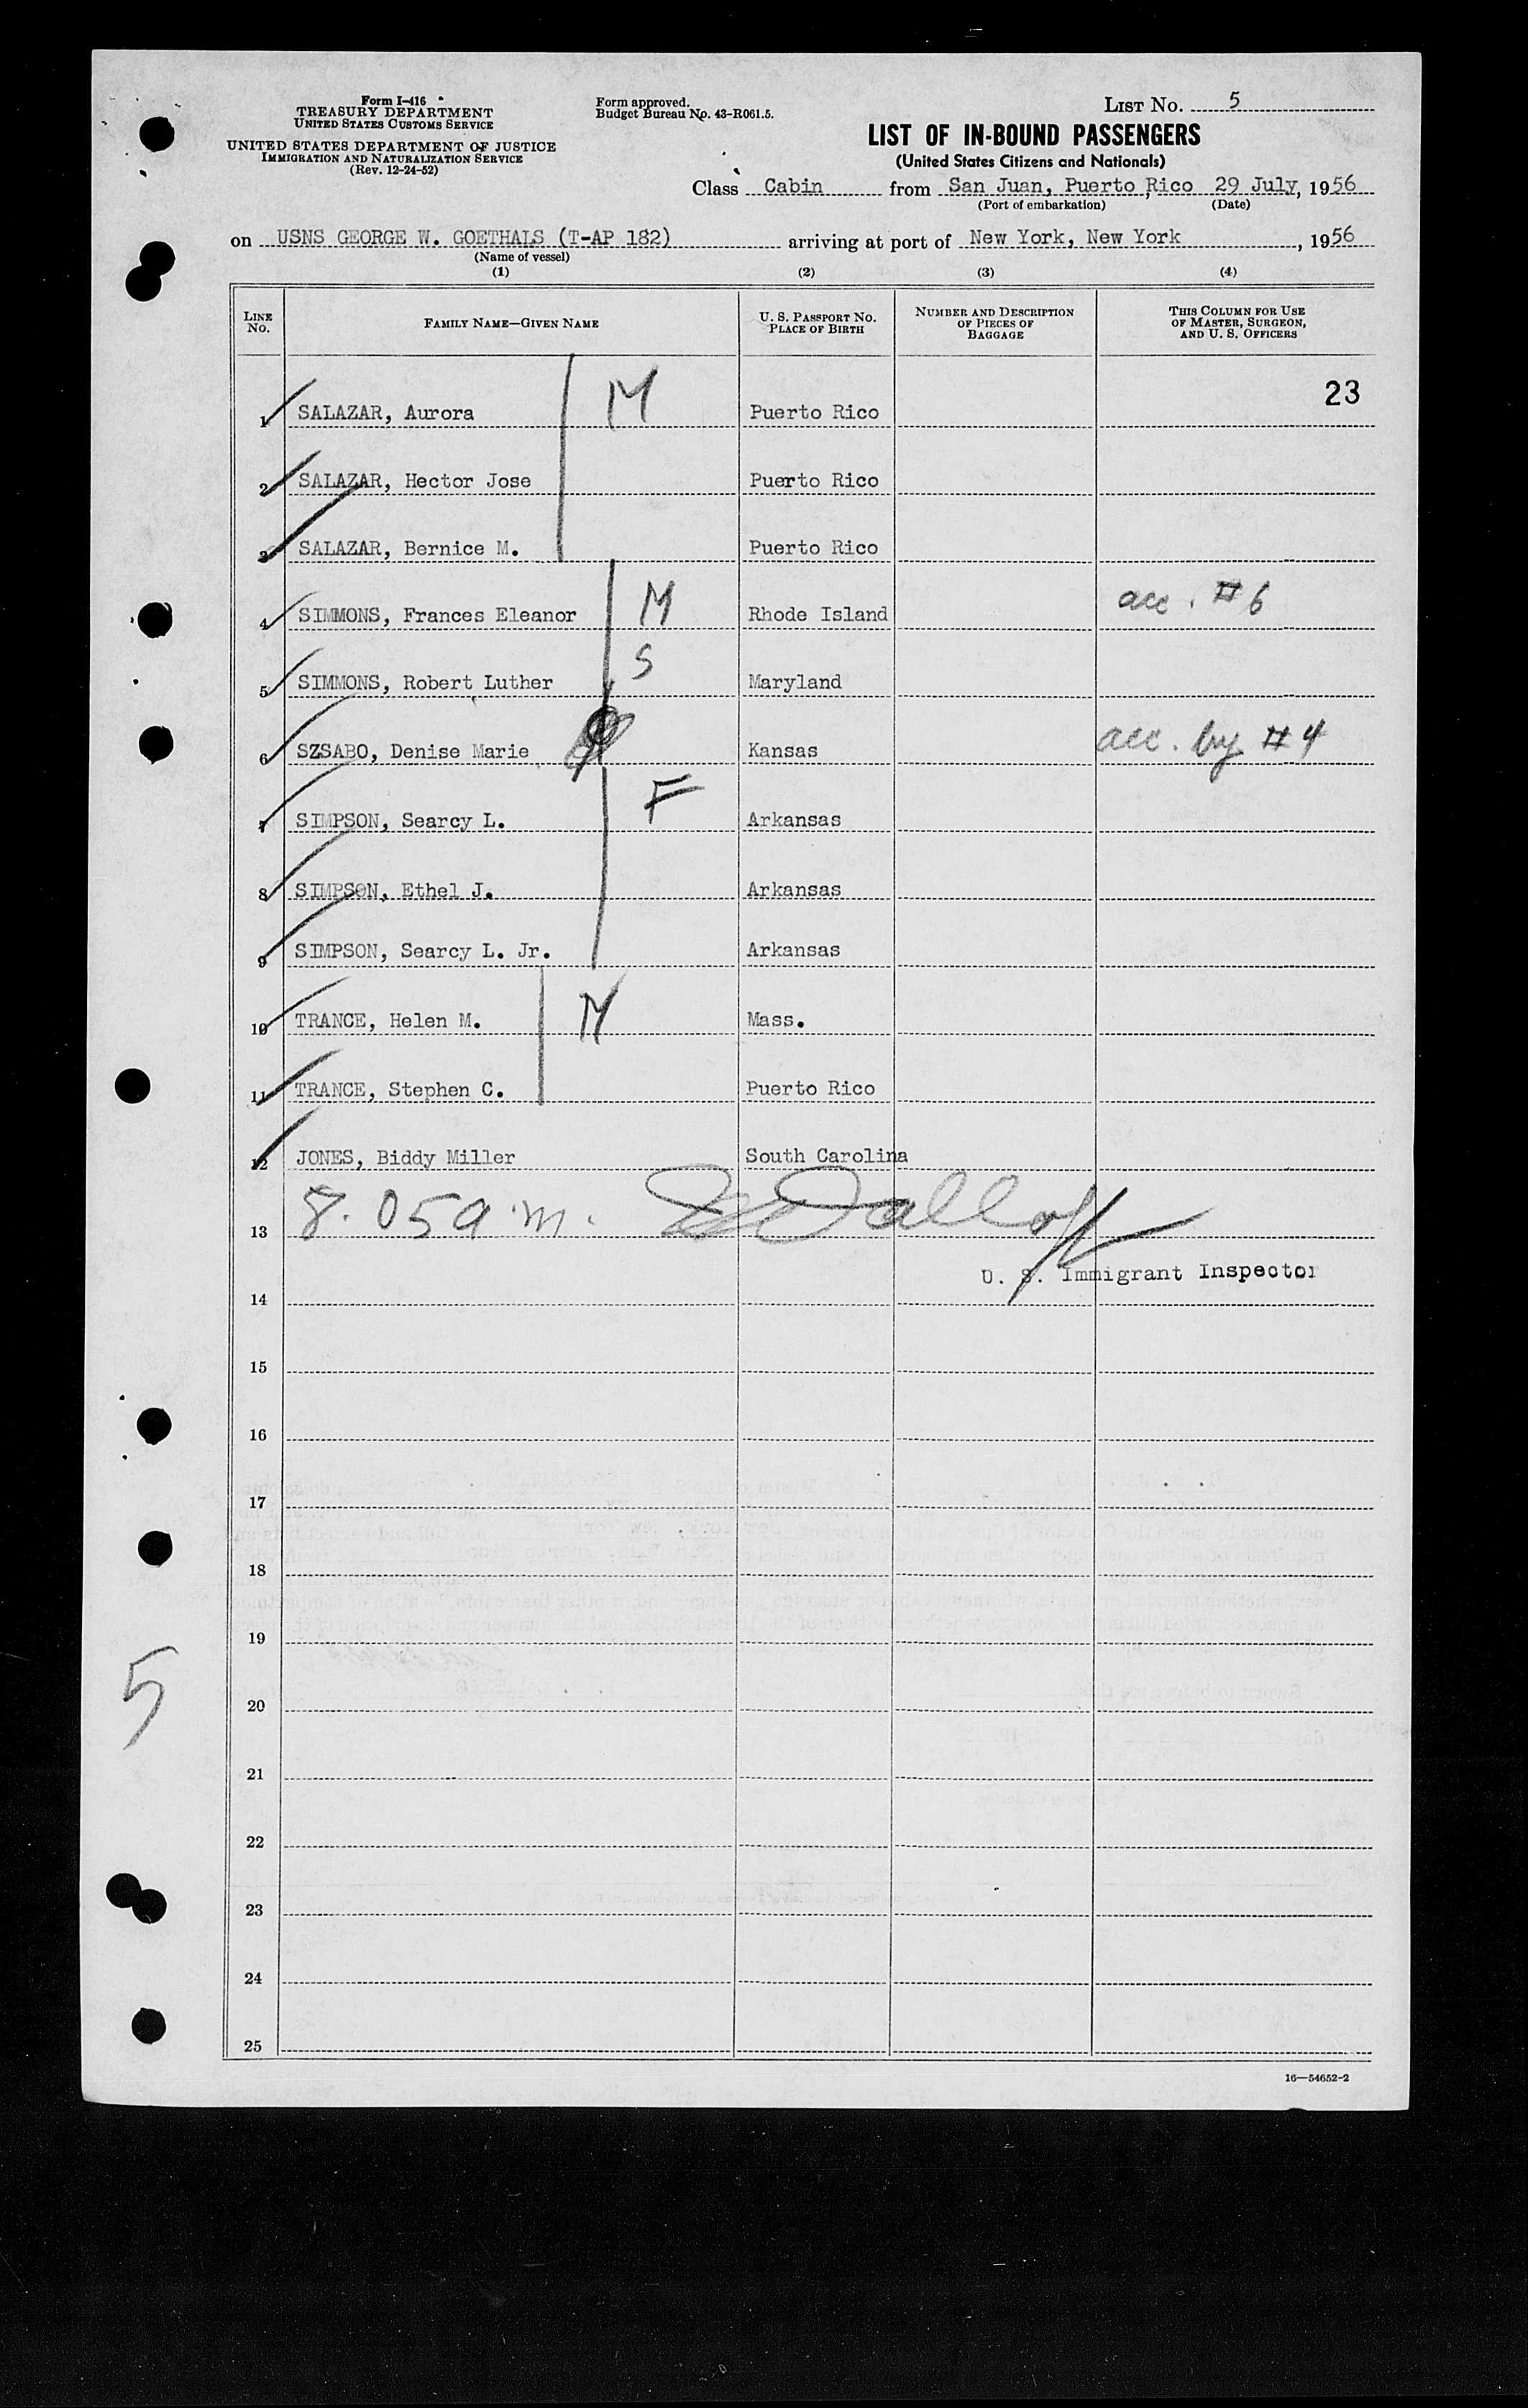 Form I-416
TREASURY DEPARTMENT
UNITED STATES CUSTOMS SERVICE
UNITED STATES DEPARTMENT OF JUSTICE
IMMIGRATION AND NATURALIZATION SERVICE
(Rev. 12-24-52)
Form approved.
Budget Bureau No. 43-R061.5.
LIST No. 5
LIST OF IN-BOUND PASSENGERS
(United States Citizens and Nationals)
Class Cabin from San Juan, Puerto Rico 29 July, 1956
(Port of embarkation) (Date)
on USNS GEORGE W. GOETHALS (T-AP 182) arriving at port of New York, New York, 1956
(Name of vessel)
(1) (2) (3) (4)
LINE No. FAMILY NAME—GIVEN NAME U. S. PASSPORT No. PLACE OF BIRTH NUMBER AND DESCRIPTION OF PIECES OF BAGGAGE THIS COLUMN FOR USE OF MASTER, SURGEON, AND U. S. OFFICERS
23
1 SALAZAR, Aurora M Puerto Rico
2 SALAZAR, Hector Jose Puerto Rico
3 SALAZAR, Bernice M. Puerto Rico
4 SIMMONS, Frances Eleanor M Rhode Island acc. #6
5 SIMMONS, Robert Luther S Maryland
6 SZSABO, Denise Marie Kansas acc. by #4
7 SIMPSON, Searcy L. F Arkansas
8 SIMPSON, Ethel J. Arkansas
9 SIMPSON, Searcy L. Jr. Arkansas
10 TRANCE, Helen M. M Mass.
11 TRANCE, Stephen C. Puerto Rico
12 JONES, Biddy Miller South Carolina
13 8.05 a.m.
U. S. Immigrant Inspector
14
15
16
17
18
19
5
20
21
22
23
24
25
16—54652-2